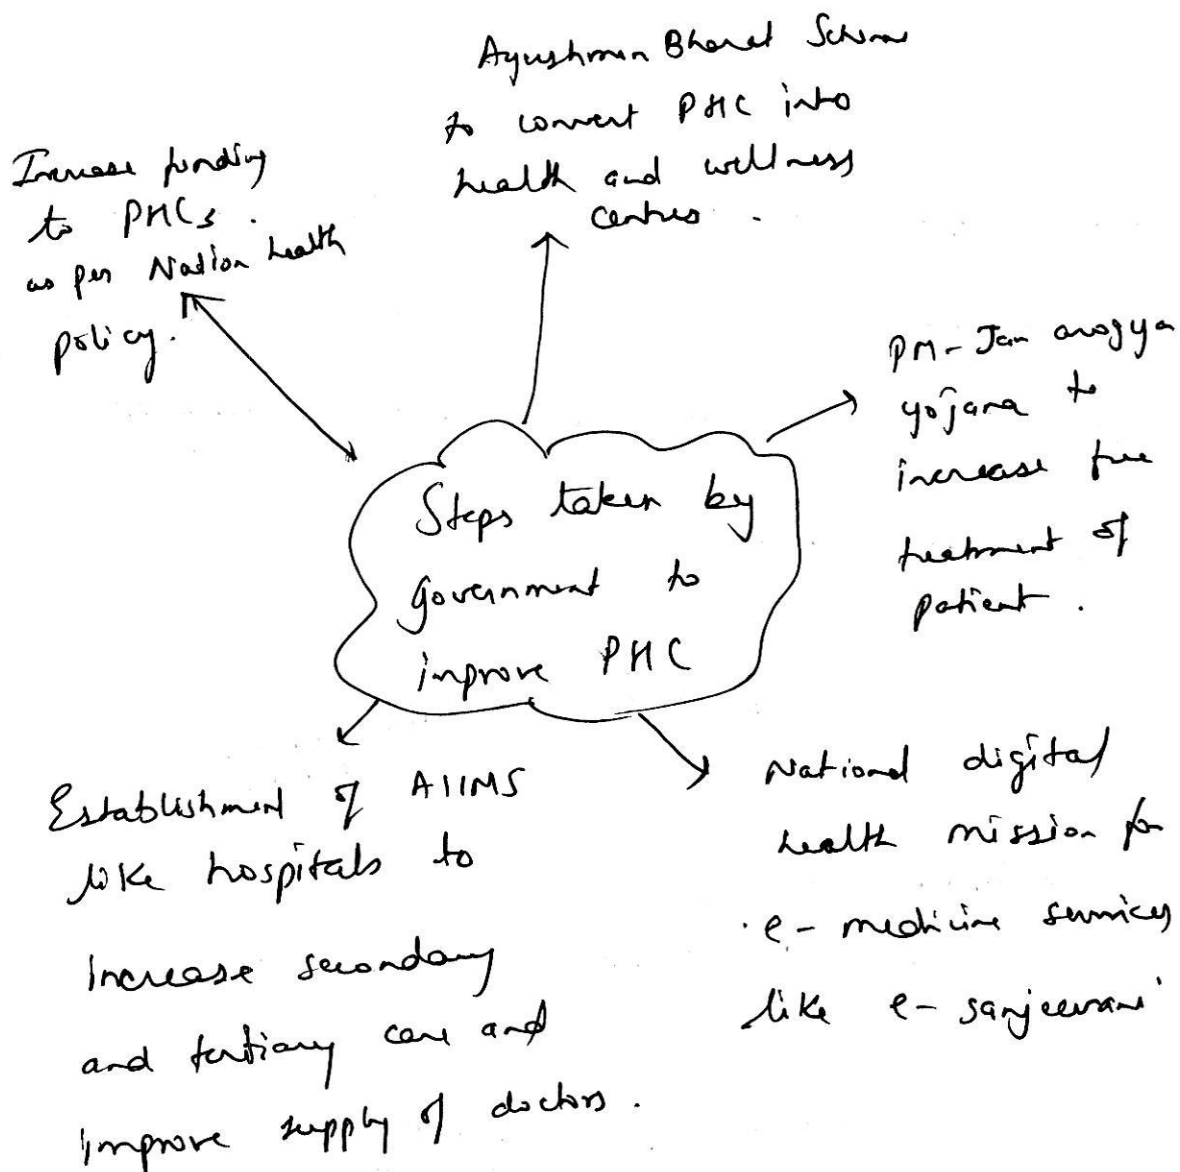 Ayushman Bharat Scheme
to convert PHC into
health and wellness
centres.
Increase funding
to PHCs.
as per Nation health
policy.
PM-Jan arogya
yojana to
increase free
treatment of
patient.
Steps taken by
government to
improve PHC
Establishment of AIIMS
like hospitals to
increase secondary
and tertiary care and
improve supply of doctors.
National digital
health mission for
e-medicine services
like e-sanjeevani